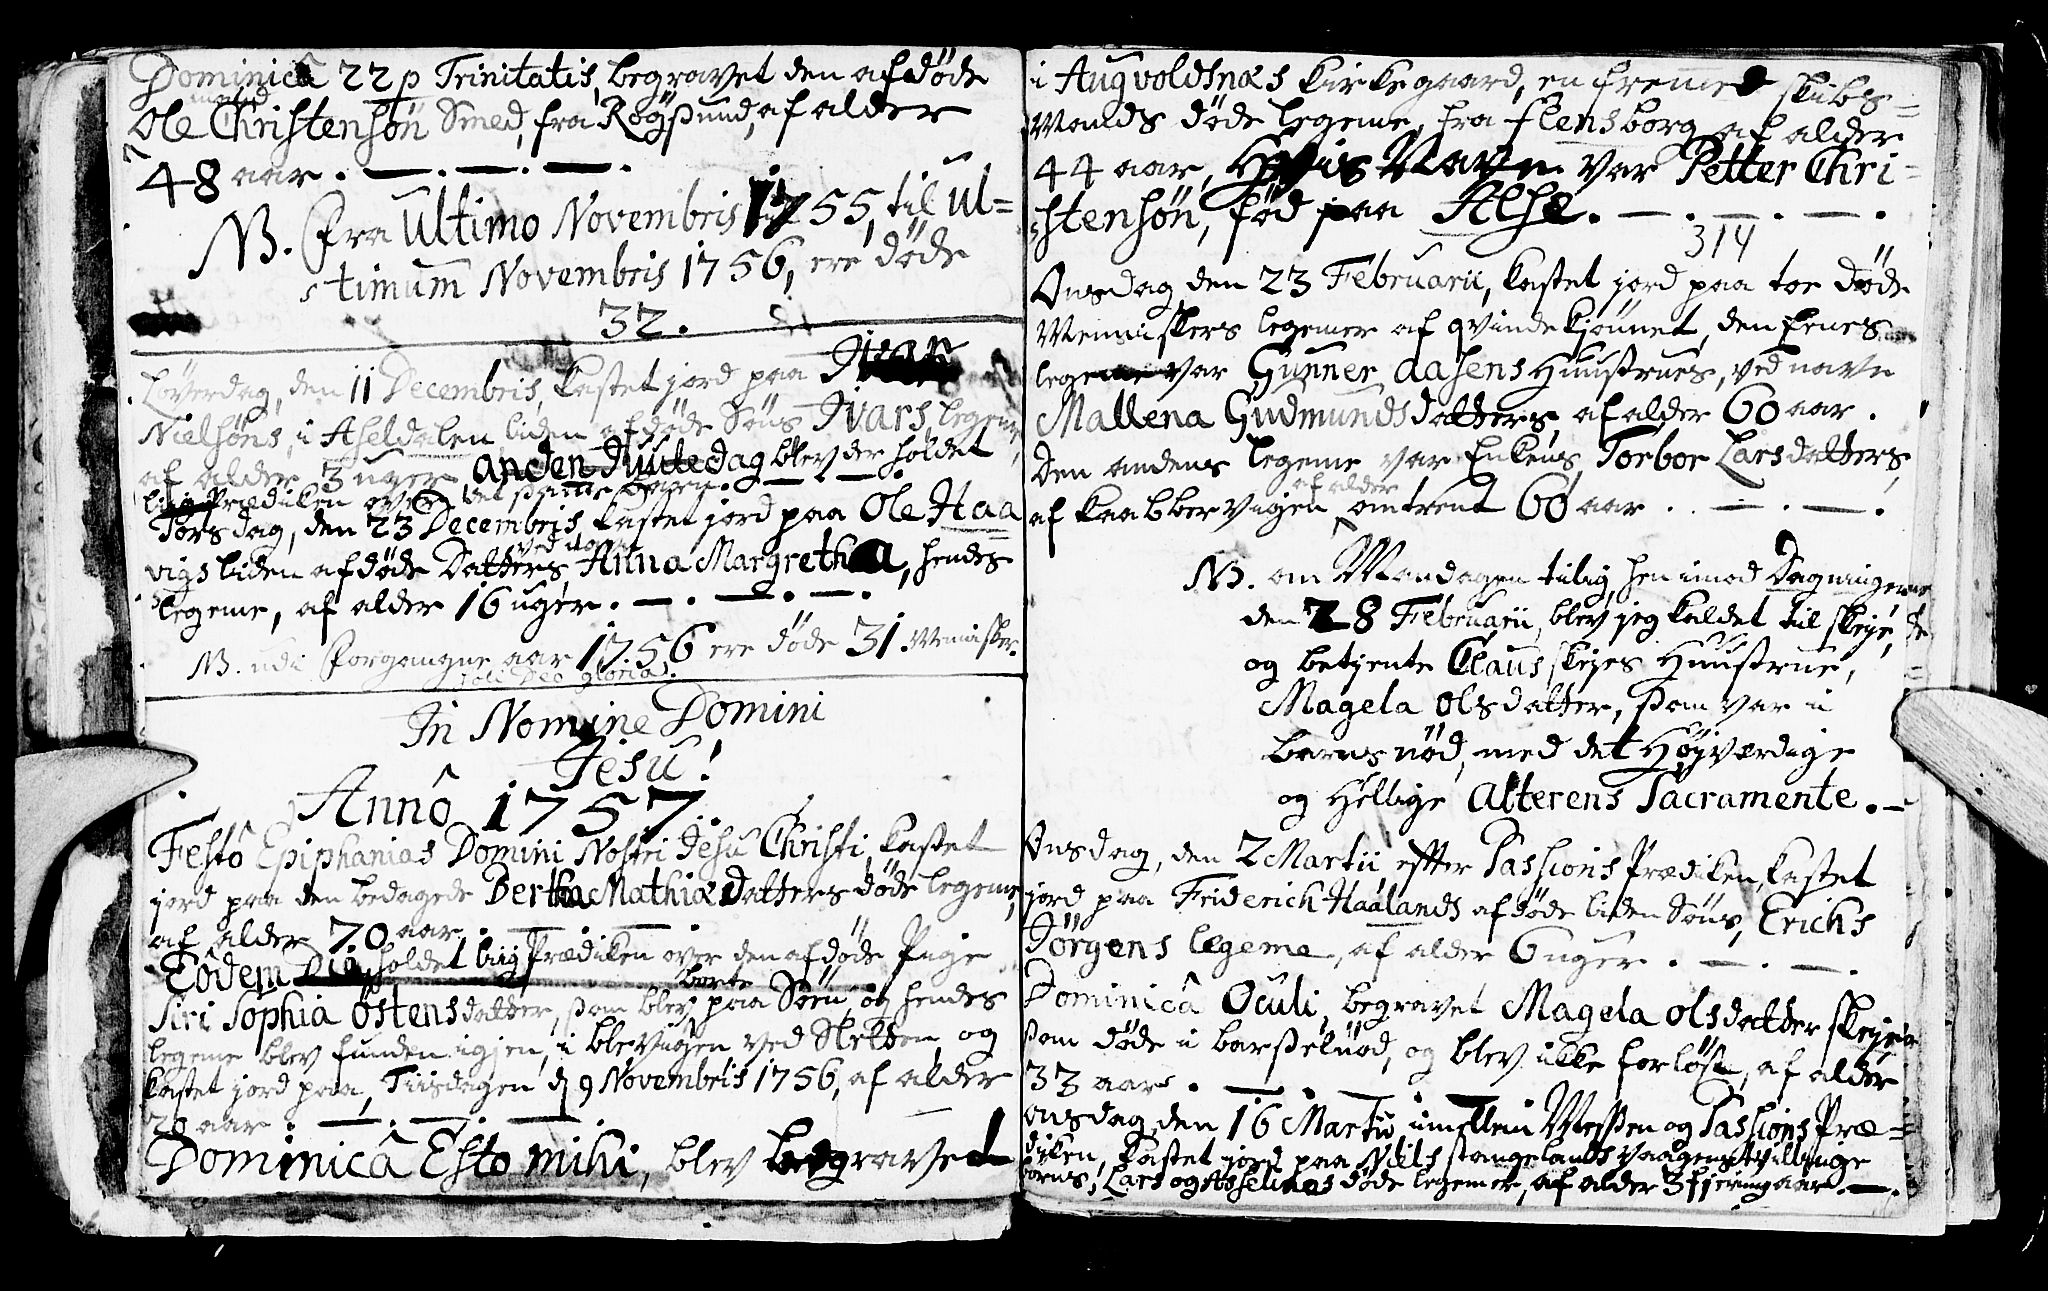 Dominicâ 22 p Trinitatis, begravet den afdöde
Ole Christensön Smed, fra Røgßund, af alder
48 aar. —. —. —.
NB. Fra Ultimo Novembris 1755, til ul=
timum Novembris 1756, ere döde
32.
Löverdag, den 11 Decembris, kastet jord paa Ivar
Nielsöns, i Aseldalen liden afdöde Söns Ivars, legeme,
af alder 3 uger. anden Juuledag blev der holdet
liig Prædiken over det
Torsdag, den 23 Decembris, kastet jord paa Ole Haa
=
ved navn
vigs liden afdöde Datters, Anna Margretha, hendes
legeme, af alder 16 uger. —. —. —.
NB. udi Forgangne aar 1756 ere döde 31. Mennisker.
soli Deo gloria.
In Nomine Domini
Jesu!
Annô 1757.
Festô Epiphanias Domini Nostri Jesu Christi, kastet
jord paa den bedagede Bertha Mathiæ Datters döde legeme,
af alder 70 aar. —. —. —.
Eôdem Die, holdet liig Prædiken over den afdöde Pige
borte
Siri Sophia Östensdatter, som blev paa Söen, og hendes
legeme blev funden igjen, i blevigen ved Sletten, og
kastet jord paa, Tiisdagen d 9 Novembris 1756, af alder
20 aar. —. —. —.
Dominicâ Esto mihi, blev begravet
i Augvoldsnæs kirkegaard, en fremmed skibs=
Mands döde legeme, fra Flensborg af alder
44 aar, Hvis Navn var Petter Chri=
stensön, föd paa Alse. —. —. —.
314
Onsdag, den 23 Februarii, kastet jord paa toe döde
Menniskers legemer af qvindekjönnet, den Eenes
legeme var Gunner Aasens Huustrues, ved navn
Mallena Gudmundsdatters, af alder 60 aar.
den andens legeme var Enkens, Torbor Larsdatters,
af alder
af Kaabbervigen, omtrent 60 aar. . —. —.
NB. om Mandagen tilig, hen imod Dagningen
den 28 Februarii, blev jeg kaldet til Skeje,
og betjente Claus Skejes Huustrue,
Magela Olsdatter, som var i
barnsnöd, med det Höjværdige
og Hellige Alterens Sacramente. —
Onsdag, den 2 Martii, effter Passions Prædiken, kastet
jord paa Friderich Haalands afdöde liden Söns, Erichs
Jörgens legeme, af alder 6 uger. —. —.
Dominicâ Oculi, begravet Magela Olsdatter Skejes
som döde i barselnöd, og blev ikke forlöst, af alder
33 aar. —. —. —.
onsdag, den 16 Martii imellem Messen og Passions Præ=
diken, kastet jord paa Niels Stangelands Vaagens tvillinge
börns, Lars og Asselinas döde legemer, af alder 3 fjering aar. —.